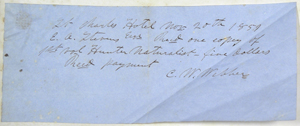 St Charles Hotel Nov 20th 1859
E. A. Stevens Esq Recd one copy of
1st vol Hunter Naturalist - five dollars
Recd payment
C. W. Webber